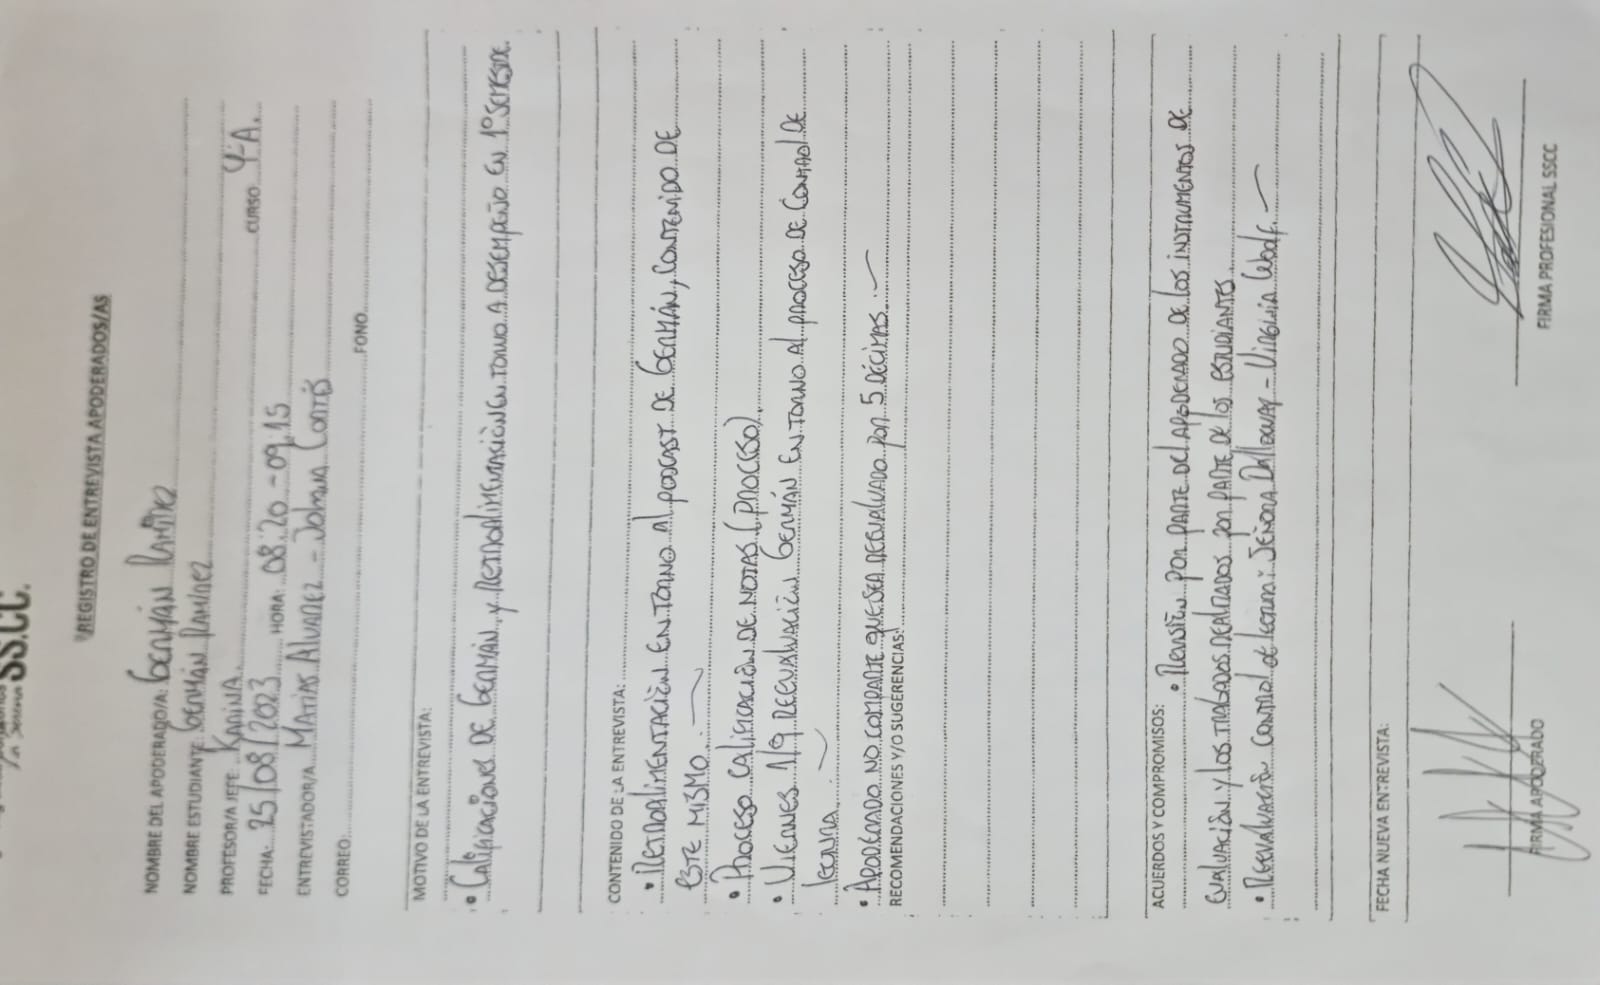 SS.CC.
REGISTRO DE ENTREVISTA APODERADOS/AS
NOMBRE DEL APODERADO/A: GERMÁN RAMÍREZ
NOMBRE ESTUDIANTE GERMÁN RAMÍREZ
PROFESOR/A JEFE: KARINA. CURSO 4°A.
FECHA: 25/08/2023 HORA: 08:20 - 09:15
ENTREVISTADOR/A MATÍAS ALVAREZ - Johana CORTÉS
CORREO: FONO
MOTIVO DE LA ENTREVISTA:
• CALIFICACIONES DE GERMÁN, y RETROALIMENTACIÓN EN TORNO A DESEMPEÑO EN 1° SEMESTRE.
CONTENIDO DE LA ENTREVISTA:
• RETROALIMENTACIÓN EN TORNO AL PODCAST DE GERMÁN, CONTENIDO DE
ESTE MISMO.
• PROCESO CALIFICACIÓN DE NOTAS (PROCESO).
• VIERNES 1/9 REEVALUACIÓN GERMÁN EN TORNO AL PROCESO DE CONTROL DE
lECTURA.
• APODERADO NO COMPARTE QUE SEA REEVALUADO POR 5 DÉCIMAS.
RECOMENDACIONES Y/O SUGERENCIAS:
ACUERDOS Y COMPROMISOS: • REVISIÓN POR PARTE DEL APODERADO DE LOS INSTRUMENTOS DE
EVALUACIÓN Y LOS TRABAJOS REALIZADOS POR PARTE DE LOS ESTUDIANTES.
• REEVALUACIÓN CONTROL de lectura: SEÑORA Dalloway - VIRGINIA Woolf.
FECHA NUEVA ENTREVISTA:
FIRMA APODERADO
FIRMA PROFESIONAL SSCC